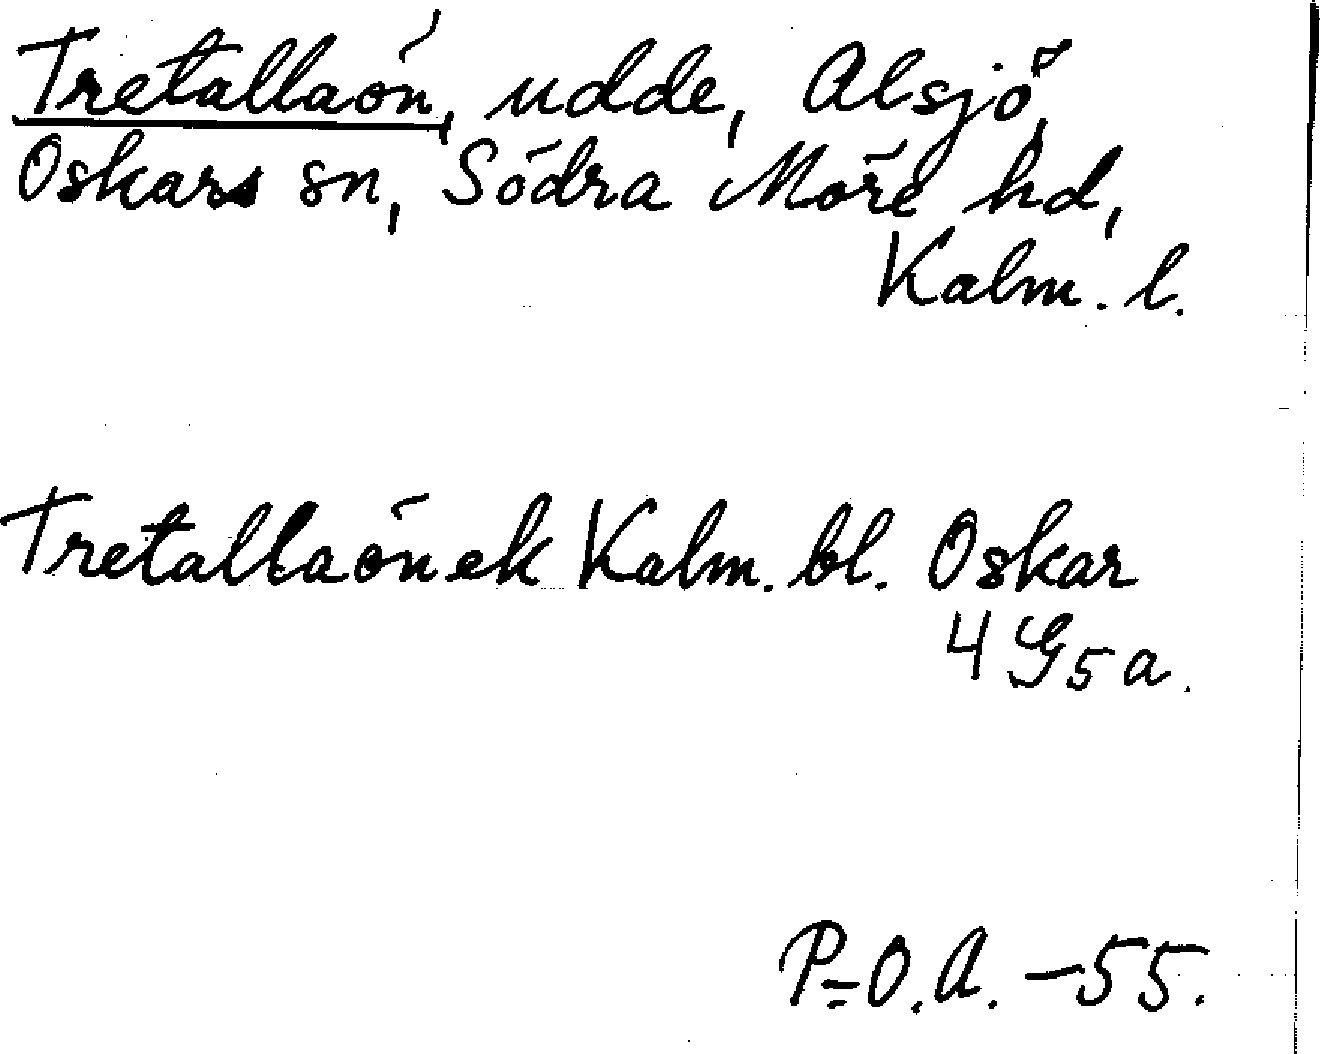 Tretallaön, udde, Alsjö,
Oskars sn, Södra Möre hd,
Kalm. l.
Tretallaön ek Kalm. bl. Oskar
4 G 5 a.
P-O.A. -55.